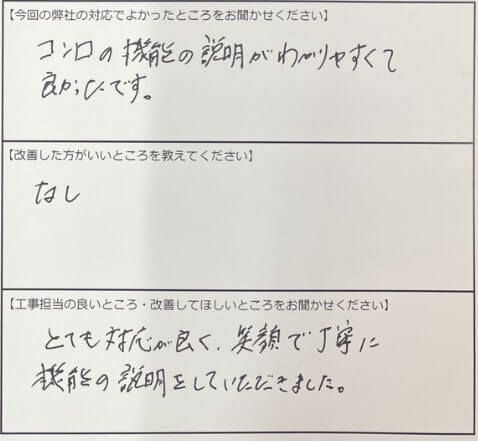 【今回の弊社の対応でよかったところをお聞かせください】
コンロの機能の説明がわかりやすくて
良かったです。
【改善した方がいいところを教えてください】
なし
【工事担当の良いところ・改善してほしいところをお聞かせください】
とても対応が良く、笑顔で丁寧に
機能の説明をしていただきました。